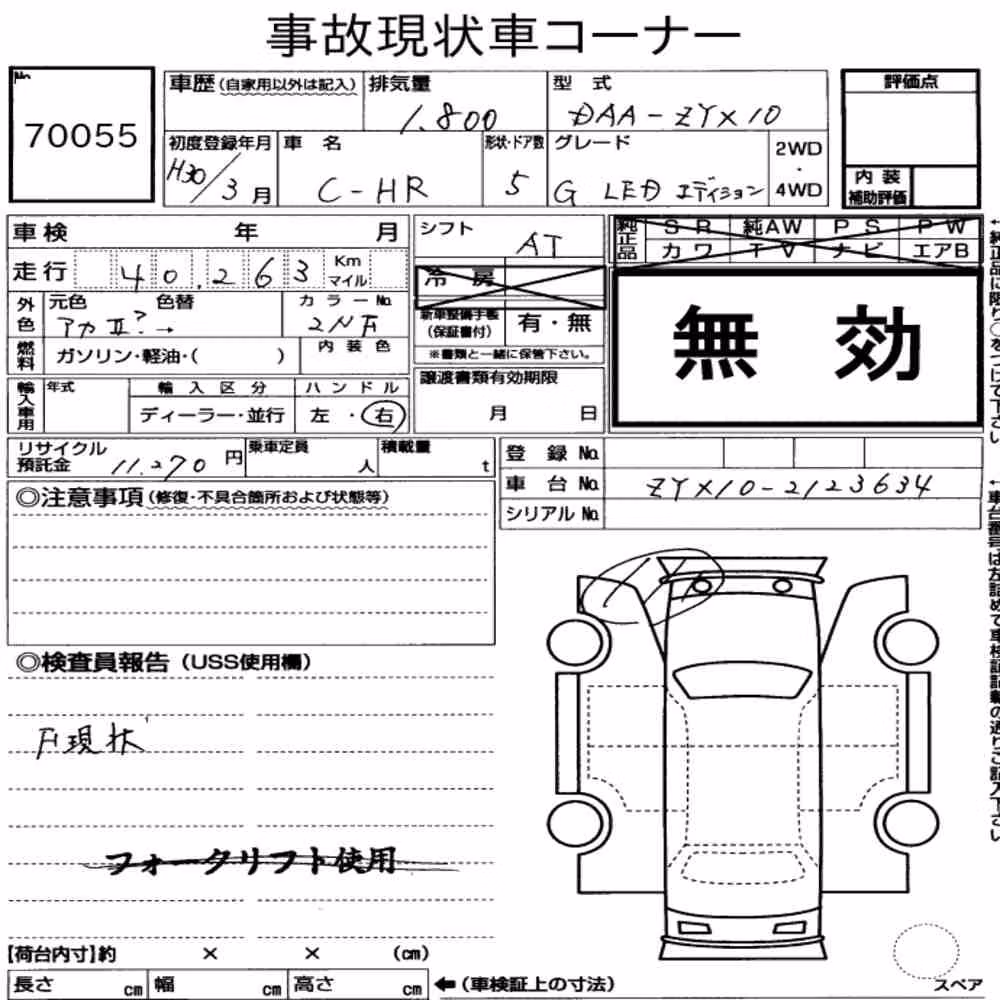 事故現状車コーナー
No.
70055
車歴 (自家用以外は記入)
排気量
1.800
型 式
DAA-ZYX10
評価点
初度登録年月
H30/3月
車 名
C-HR
形状・ドア数
5
グレード
G LED エディション
2WD
・
4WD
内 装
補助評価
車検 年 月
走行 40.263 Km
マイル
外色
元色 色替
アカⅡ?→
カラーNo.
2NF
燃料
ガソリン・軽油・( )
内装色
輸入車用
年式
輸入区分
ディーラー・並行
ハンドル
左・右
シフト
AT
冷 房
新車整備手帳
(保証書付)
有・無
※書類と一緒に保管下さい。
譲渡書類有効期限
月 日
純正品
SR 純AW PS PW
カワ TV ナビ エアB
無 効
リサイクル
預託金 11.270円
乗車定員
人
積載量
t
登 録 No.
車 台 No. ZYX10-2123634
シリアル No.
◎注意事項 (修復・不具合箇所および状態等)
◎検査員報告 (USS使用欄)
現状
フォークリフト使用
【荷台内寸】約 × × (cm)
長さ cm 幅 cm 高さ cm
←(車検証上の寸法)
スペア
←純正品に限り○をつけて下さい
←車台番号は左詰めで車検証記載の通りご記入下さい